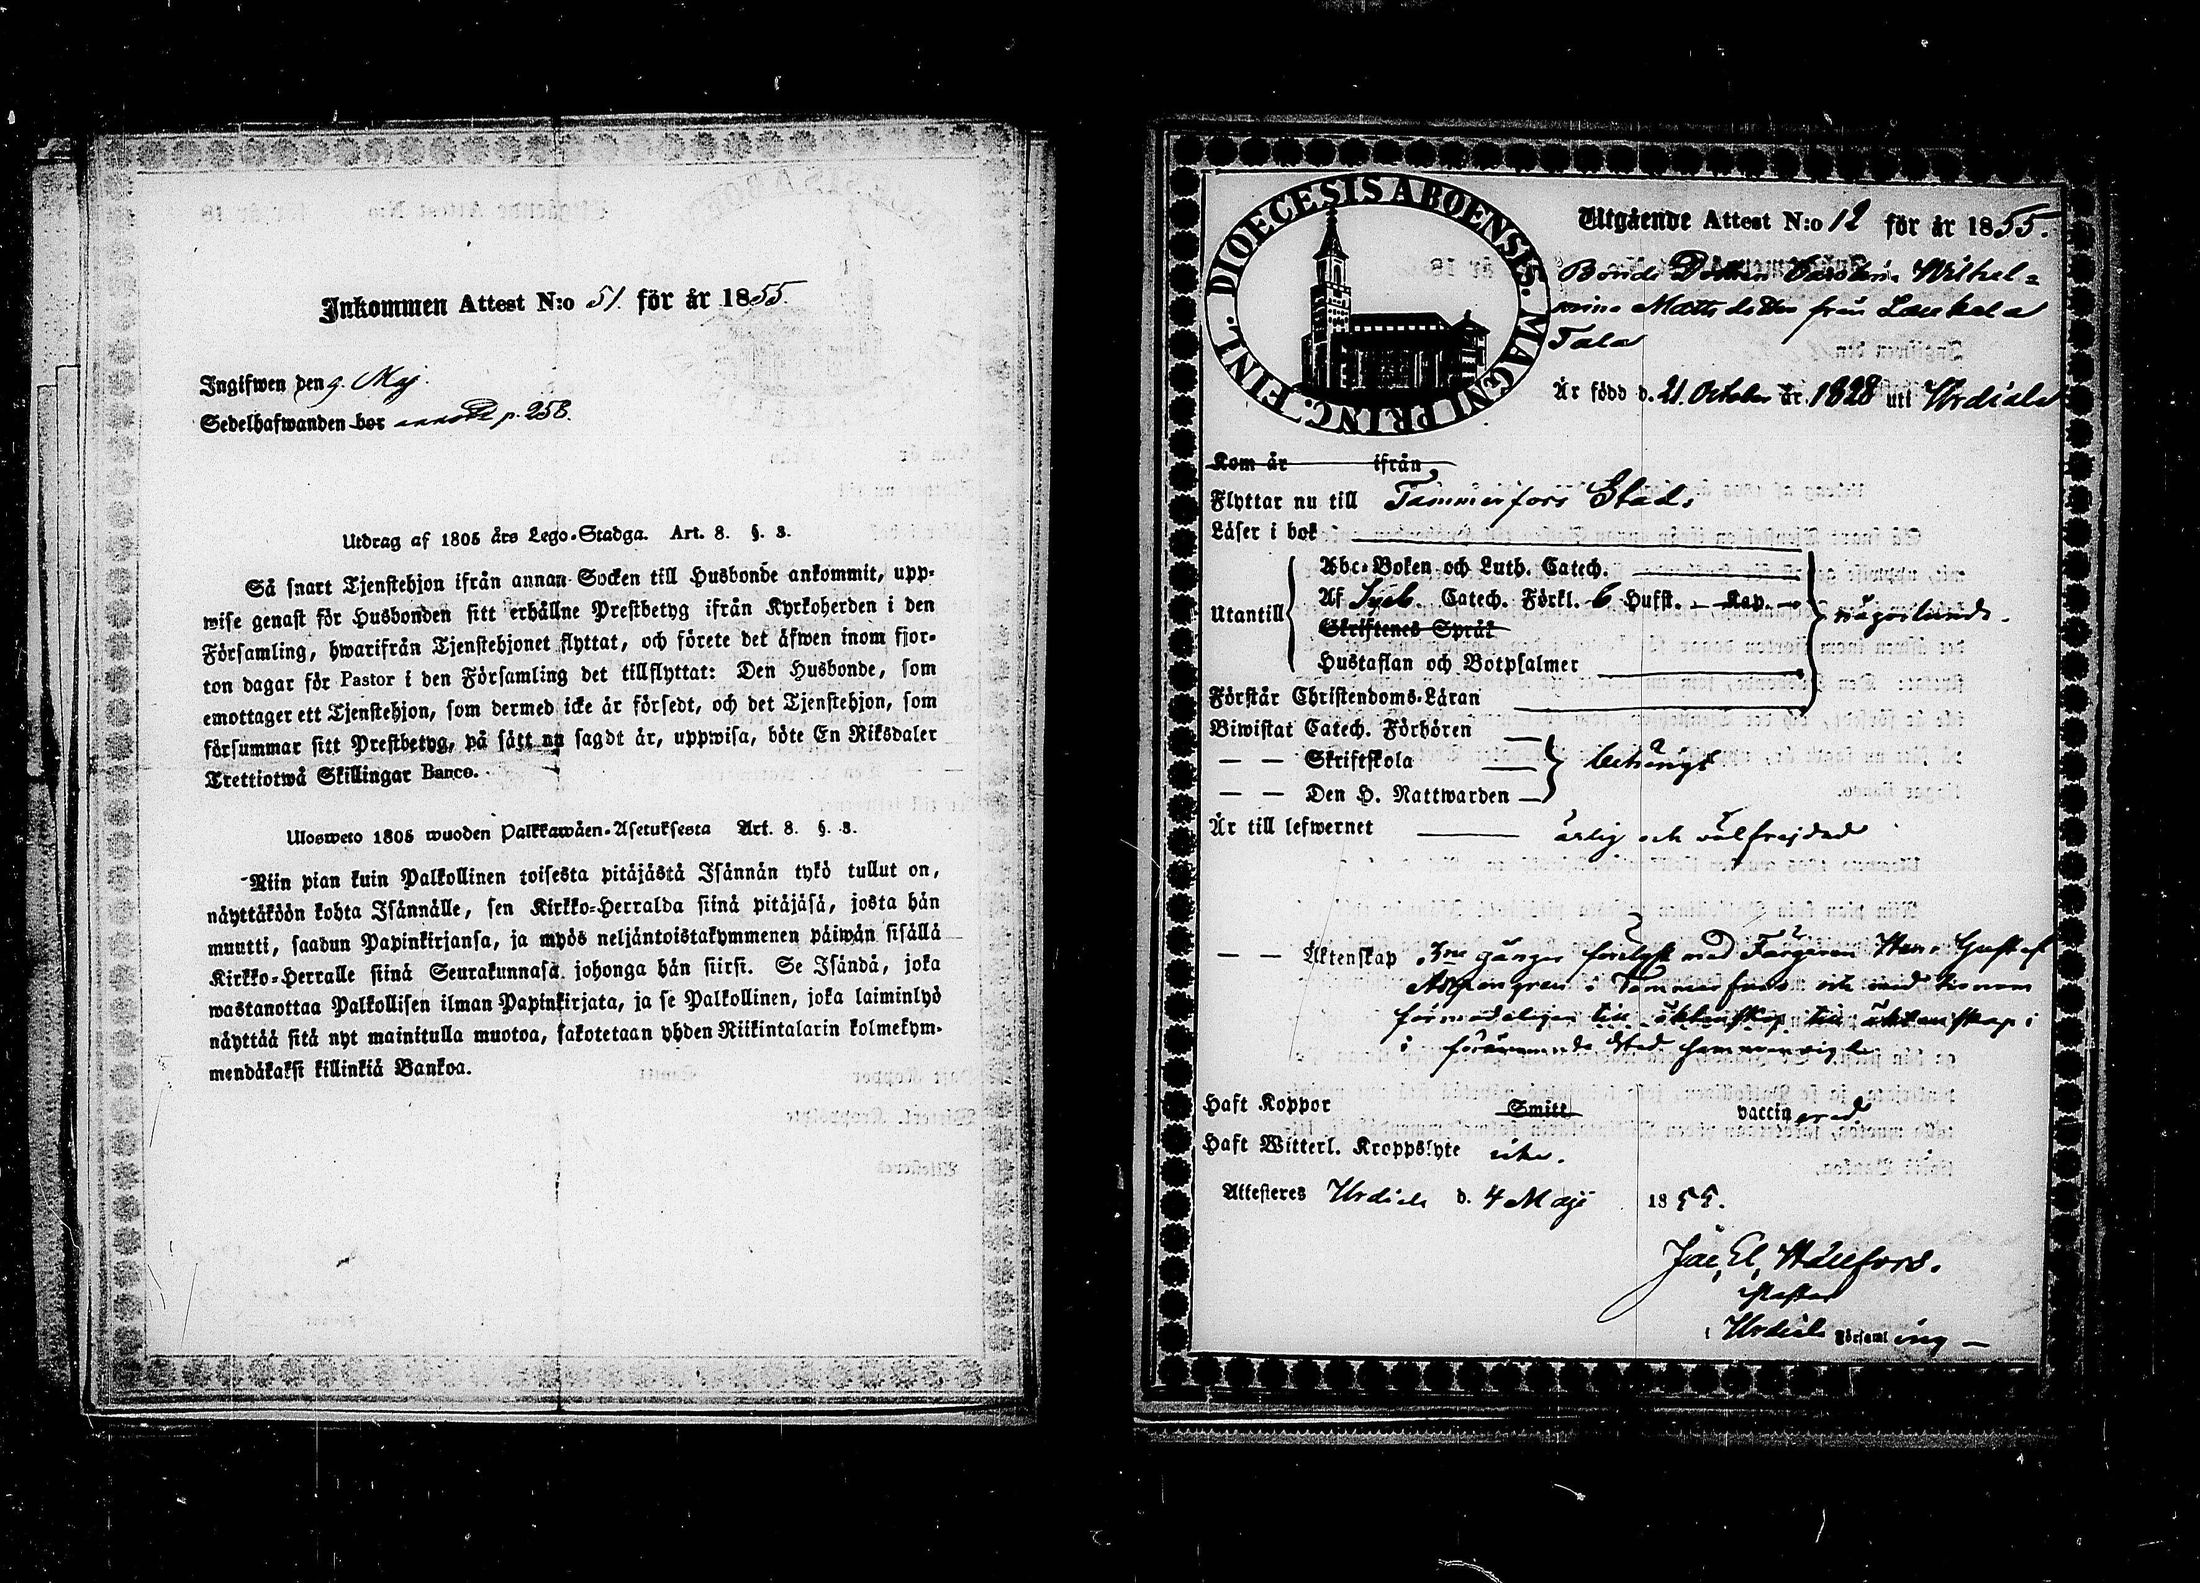 Inkommen Attest N:o 51. för år 1855.
Ingifwen den 9. Maj.
Sedelhafwanden bor p. 258.
Utdrag af 1805 års Lego-Stadga. Art. 8. §. 3.
Så snart Tjenstehjon ifrån annan Socken till Husbonde ankommit, upp-
wise genast för Husbonden sitt erhållne Prestbetyg ifrån Kyrkoherden i den
Församling, hwarifrån Tjenstehjonet flyttat, och förete det äfwen inom fjor-
ton dagar för Pastor i den Församling det tillflyttat: Den Husbonde, som
emottager ett Tjenstehjon, som dermed icke är försedt, och det Tjenstehjon, som
försummar sitt Prestbetyg, på sätt nu sagdt är, uppwisa, böte En Riksdaler
Trettiotwå Skillingar Banco.
Ulosweto 1805 wuoden Palkkawäen-Asetuksesta Art. 8. §. 3.
Niin pian kuin Palkollinen toisesta pitäjästä Isännän tykö tullut on,
näyttäköön kohta Isännälle, sen Kirkko-Herralda siinä pitäjäsä, josta hän
muutti, saadun Papinkirjansa, ja myös neljäntoistakymmenen päiwän sisällä
Kirkko-Herralle siinä Seurakunnasa johonga hän siirsi. Se Isändä, joka
wastanottaa Palkollisen ilman Papinkirjata, ja se Palkollinen, joka laiminlyö
näyttää sitä nyt mainitulla muotoa, sakotetaan yhden Riikintalarin kolmekym-
mendäkaksi killinkiä Bankoa.
DIOECESIS ABOENSIS. MAGNI PRINC. FINL.
Utgående Attest N:o 12 för år 1855.
Bonde Dottren Carolina Wilhel-
mina Matts dotter från Laukela
Tala
Är född d. 21. October år 1828 uti Urdiala
Kom år ifrån
Flyttar nu till Tammerfors Stad.
Läser i bok
Utantill
Abc-Boken och Luth. Catech.
Af Sveb. Catech. Förkl. 6 Hufst. Kap. någorlunda.
Skriftenes Språk
Hustaflan och Botpsalmer
Förstår Christendoms-Läran
Biwistat Catech. Förhören
— — Skriftskola behörigt
— — Den H. Nattwarden
Är till lefwernet ärlig och välfrejdad
— — Äktenskap 3ne gånger förelyst med Färgaren Gustaf
i Tammerfors och med honom
förmodeligen till äktenskap till äktenskap i
i förenämnde Stad sammanvigde
Haft Koppor Smitt vaccinerad
Haft Witterl. Kroppslyte icke.
Attesteres Urdiala d. 4 Maji 1855.
Jac. El. Hällfors.
Pastor
i Urdiala Församling